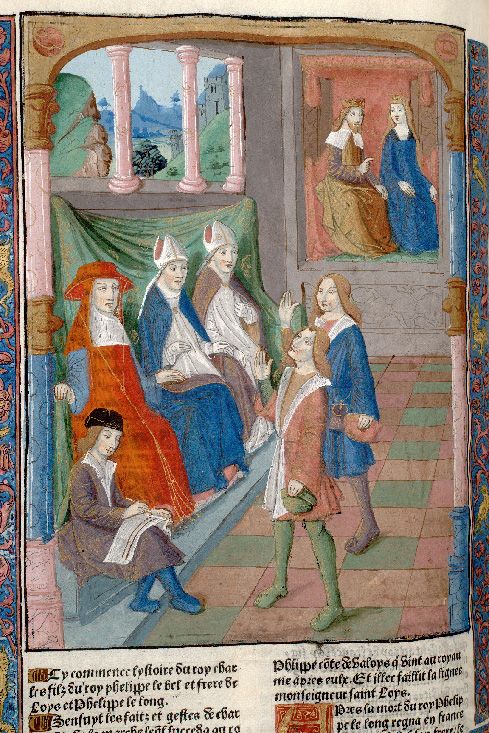 Cy commence lystoire du roy char
les filz du roy phelippe le bel et frere de
Loys et Phelippe le long.
Ensuyt les faitz et gestes de char
Phlippe cōte de valoys q̄ vint au royau
me apres eulx. Et illec faillit la lignee
monseigneur saint Loys.
Pres sa mort du roy phelip
pe le long regna en france